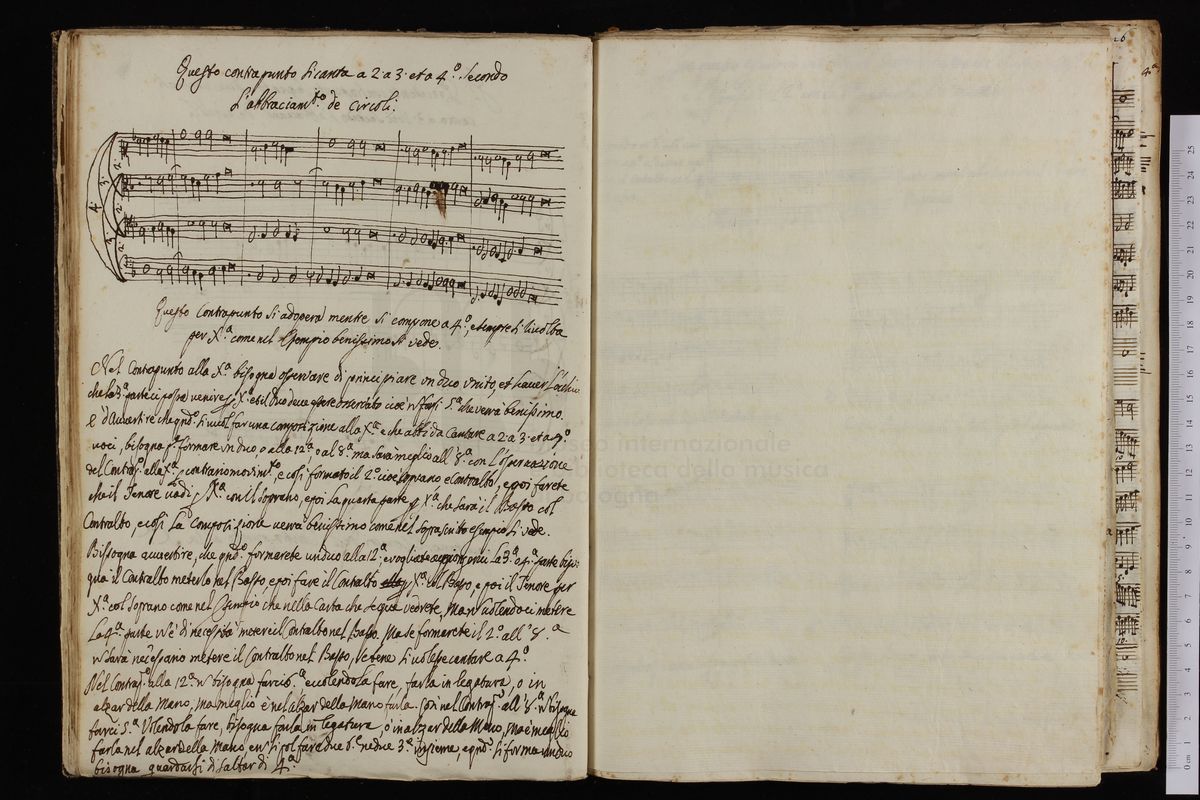 Questo contrapunto si canta a 2 a 3. et a 4.º secondo
L'abbraciam.to de circoli.
4. 3. 2. 2. 2. 3.
Questo contrapunto si adopera mentre si compone a 4.º, e sempre si rivolta
per X.a come nel esempio benissimo si vede.
Nel Contapunto alla X.a bisogna osservare di principiare un duo unito, et haver l'occhio
che la 3.a parte ci possa venire p X.a et il Duo deve essere osservato cioè n' farsi 5.a che verrà benissimo.
E d'avvertire che qnd.o si vuol far una compositione alla X.a e che abbi da Cantare a 2 a 3. et a 4.º
voci, bisogna p.a formare un duo o alla 12.a o al 8.a ma sarà meglio all' 8.a con l'osservazione
del Contrap.o alla X.a, e contrario movim.to, e così formato il 2.º cioè soprano e Contralto, e poi farete
che il Tenore vadi p X.a con il soprano, e poi la quarta parte p X.a che sarà il Basso col
Contralto, e così la compositione verrà benissimo come nel soprascritto esempio si vede.
Bisogna avvertire, che qnd.o formerete un duo alla 12.a, e vogliate la 3.a o 4.a parte biso-
gna il Contralto meterlo nel Basso e poi fare il Contralto p X.a col Basso, e poi il Tenore per
X.a col soprano come nel Esempio che nella Carta che segue vedrete, Ma n' volendoci metere
la 4.a parte n' v'è di necessità metere il Contralto nel Basso. Ma se formerete il 2.º all' 8.a
n' sarà necessario metere il Contralto nel Basso, se bene si volesse cantare a 4.º
Nel Contrap.o alla 12.a n' bisogna farci 6.a e volendola fare, farla in legatura, o in
alzar della Mano, ma meglio è nel alzar della Mano farla. Così nel Contrap.o all' 8.a n' bisogna
farci 5.a Volendola fare, bisogna farla in legatura, o in alzar della Mano, ma è meglio
farla nel alzar della Mano, e n' si pol fare due 6.e ne due 3.e insieme, e qnd.o si forma un duo
bisogna guardarsi di saltar di 4.a
museo internazionale
biblioteca della musica
bologna
26
4.a
0 cm 1 2 3 4 5 6 7 8 9 10 11 12 13 14 15 16 17 18 19 20 21 22 23 24 25